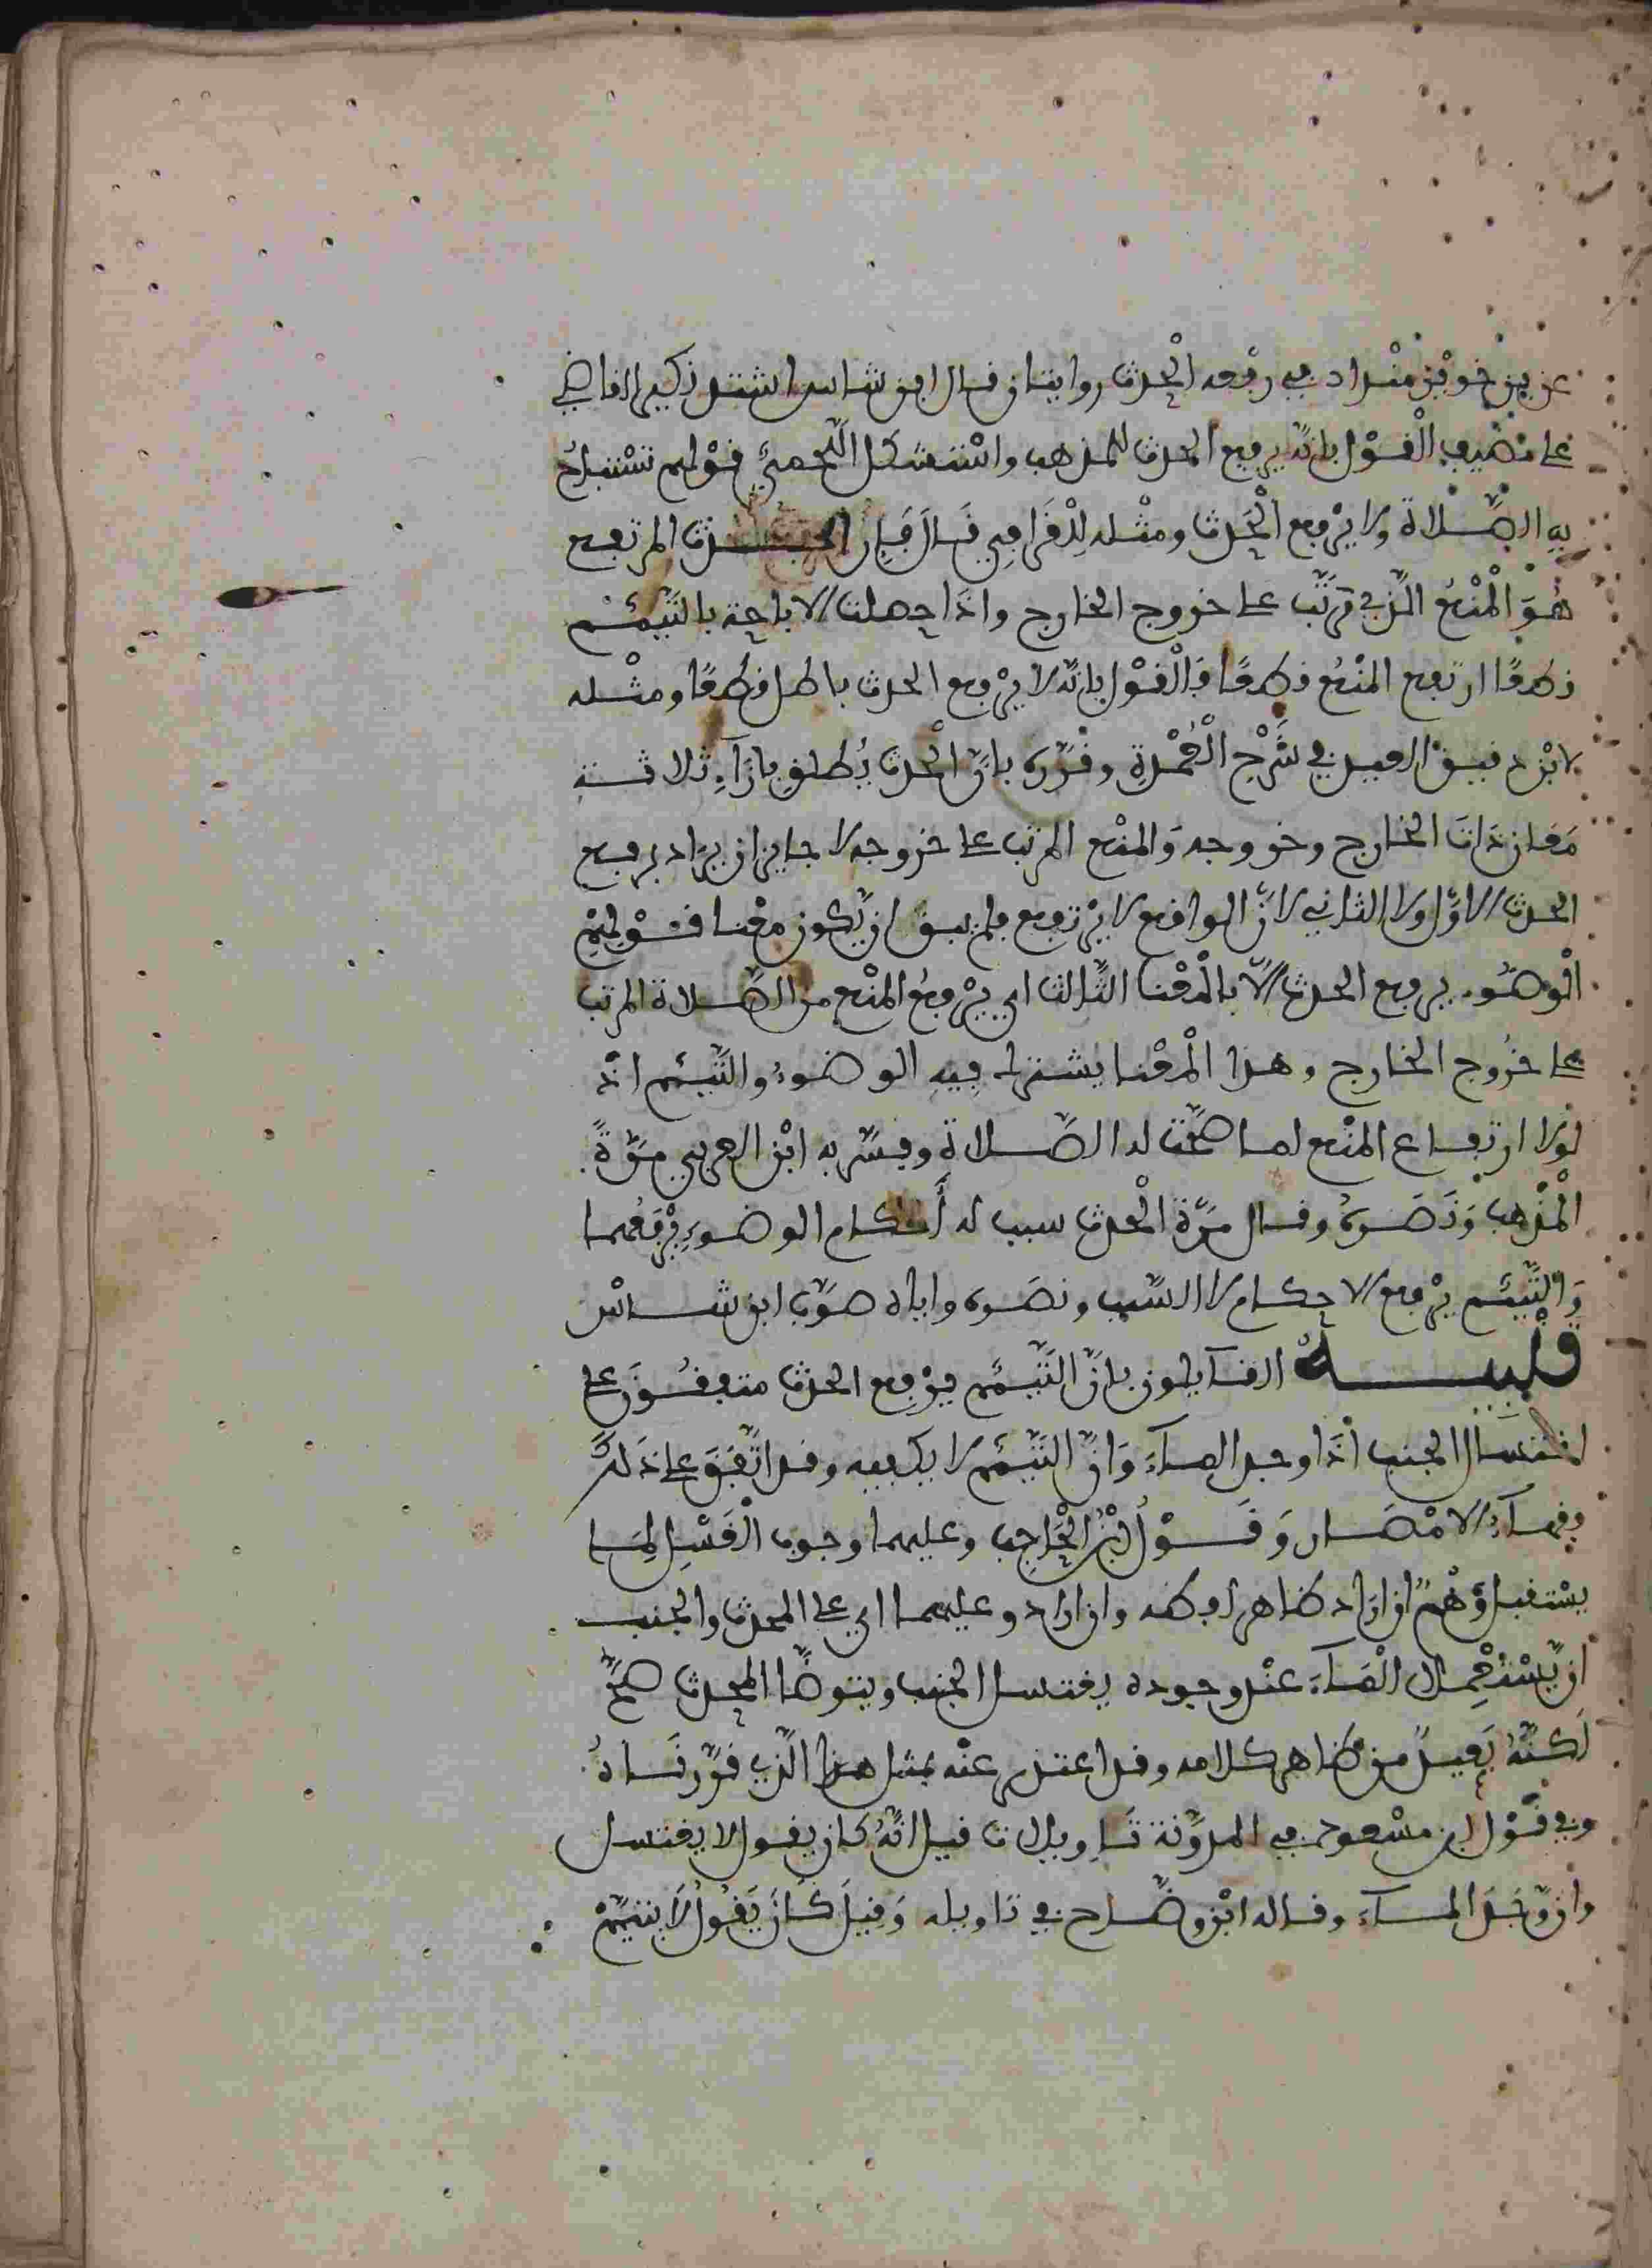 عن بن خويز منداد في رفعه الحدث روايتان قال ابن شاس اشتد نكير القاضي
على مضيف القول بانه يرفع الحدث للمذهب واستشكل اللخمي قولهم تستباح
به الصلاة ولا يرفع الحدث ومثله للقرافي قال فان الحدث المرتفع
هو المنع الذي ترتب على خروج الخارج واذا حصلت الاباحة بالتيمم
قطعًا ارتفع المنع قطعًا فالقول بانه لا يرفع الحدث باطل قطعًا ومثله
لابن دقيق العيد في شرح العمدة وقرره بان الحدث يُطلق بازآء ثلاثة
معان ذات الخارج وخروجه والمنع المرتب على خروجه لا جايز ان يراد برفع
الحدث الاول ولا الثاني لان الواقع لا يرتفع فلم يبق ان يكون معنا قولهم
الوضوء يرفع الحدث الا بالمعنا الثالث اي يرفع المنع من الصلاة المرتب
على خروج الخارج وهذا المعنا يشترك فيه الوضوء والتيمم اذ
لولا ارتفاع المنع لما صحت له الصلاة وفسر به ابن العربي مرة
المذهب ونصره وقال مرة الحدث سبب له أحكام الوضوء يرفعهما
والتيمم يرفع الاحكام لا السبب ونصره واياه صوب ابن شاس
تنبيه القآيلون بان التيمم يرفع الحدث متفقون على
اغتسال الجنب اذا وجد المآء وان التيمم لا يكفيه وقد اتفق على ذلك
فقهآء الامصار وقول ابن الحاجب وعليهما وجوب الغسل لما
يستقبل وهم ان اراد ظاهر لفظه وان اراد وعليهما اي على المحدث والجنب
ان يستعمل المآء عند وجوده يغتسل الجنب ويتوضا المحدث صح
لكنه بعيد من ظاهر كلامه وقد اعتذر عنه بمثل هذا الذي قررناه
وفي قول ابن مسعود في المدونة تاويلات قيل انه كان يقول لا يغتسل
وان وجد المآء وقاله ابن وضاح في تاويله وقيل كان يقول لا يتيمم